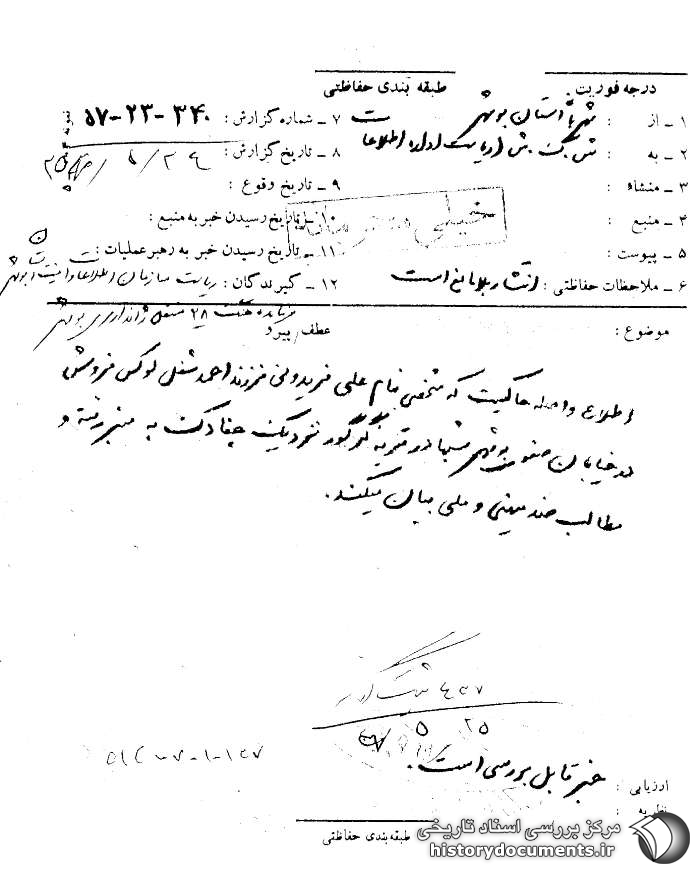 درجه فوریت:
طبقه بندی حفاظتی
۱ ـ از : شهربانی استان بوشهر
۲ ـ به :
۳ ـ منشاء :
۴ ـ منبع :
۵ ـ پیوست :
۶ ـ ملاحظات حفاظتی : انتشار بلامانع است
۷ ـ شماره گزارش : ۳۴۰-۲۳-۵۷
۸ ـ تاریخ گزارش :
۹ ـ تاریخ وقوع :
۱۰ ـ تاریخ رسیدن خبر به منبع :
۱۱ ـ تاریخ رسیدن خبر به رهبر عملیات :
۱۲ ـ گیرندگان : ریاست سازمان اطلاعات و امنیت بوشهر
فرمانده هنگ ۲۸ مستقل ژاندارمری بوشهر
خیلی محرمانه
موضوع :
عطف/پیرو
اطلاع واصله حاکیست که شخصی بنام علی فریدونی فرزند احمد شغل لوکس فروش
در خیابان صفوی بوشهر شبها در قریه گورک نزدیک چغادک به منبر رفته و
مطالب ضد میهنی و ملی بیان میکند.
۲۵ ۵
ارزیابی : خبر قابل بررسی است.
نظریه :
طبقه بندی حفاظتی
مرکز بررسی اسناد تاریخی
historydocuments.ir